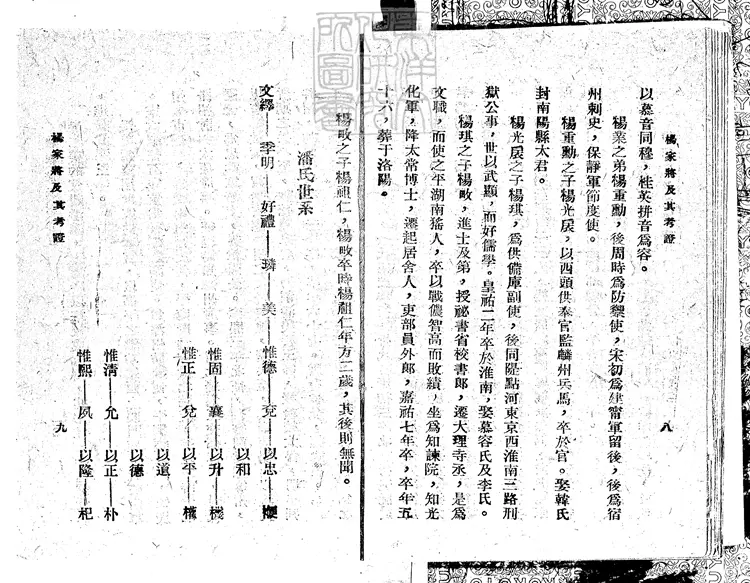 楊家將及其考證
八
以慕音同穆，桂英拼音爲容。
楊業之弟楊重勳，後周時爲防禦使，宋初爲建甯軍留後，後爲宿
州刺史，保靜軍節度使。
楊重勳之子楊光扆，以西頭供奉官監麟州兵馬，卒於官。娶韓氏
封南陽縣太君。
楊光扆之子楊琪，爲供備庫副使，後同提點河東京西淮南三路刑
獄公事，世以武顯，而好儒學。皇祐二年卒於淮南，娶慕容氏及李氏。
楊琪之子楊畋，進士及第，授祕書省校書郎，遷大理寺丞，是爲
文職，而使之平湖南猺人，卒以戰儂智高而敗績，坐爲知諫院，知光
化軍，降太常博士，遷起居舍人，吏部員外郎，嘉祐七年卒，卒年五
十六，葬于洛陽。
楊畋之子楊祖仁，楊畋卒時楊祖仁年方二歲，其後則無聞。
潘氏世系
文繹——季明——好禮——璘——美——惟德——克——以忠——
以和
惟固——襄——以升——機
惟正——兌——以平——
以道
以德
惟清——允——以正——朴
惟熙——夙——以隆——杞
楊家將及其考證
九